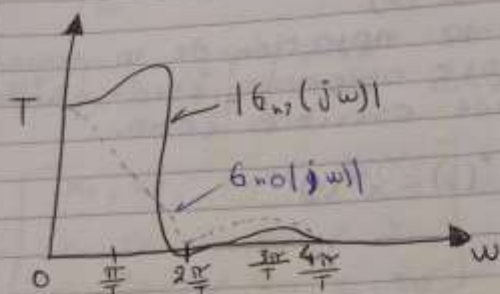 T
|G_h1(jω)|
G_h0(jω)|
0 π/T 2π/T 3π/T 4π/T ω